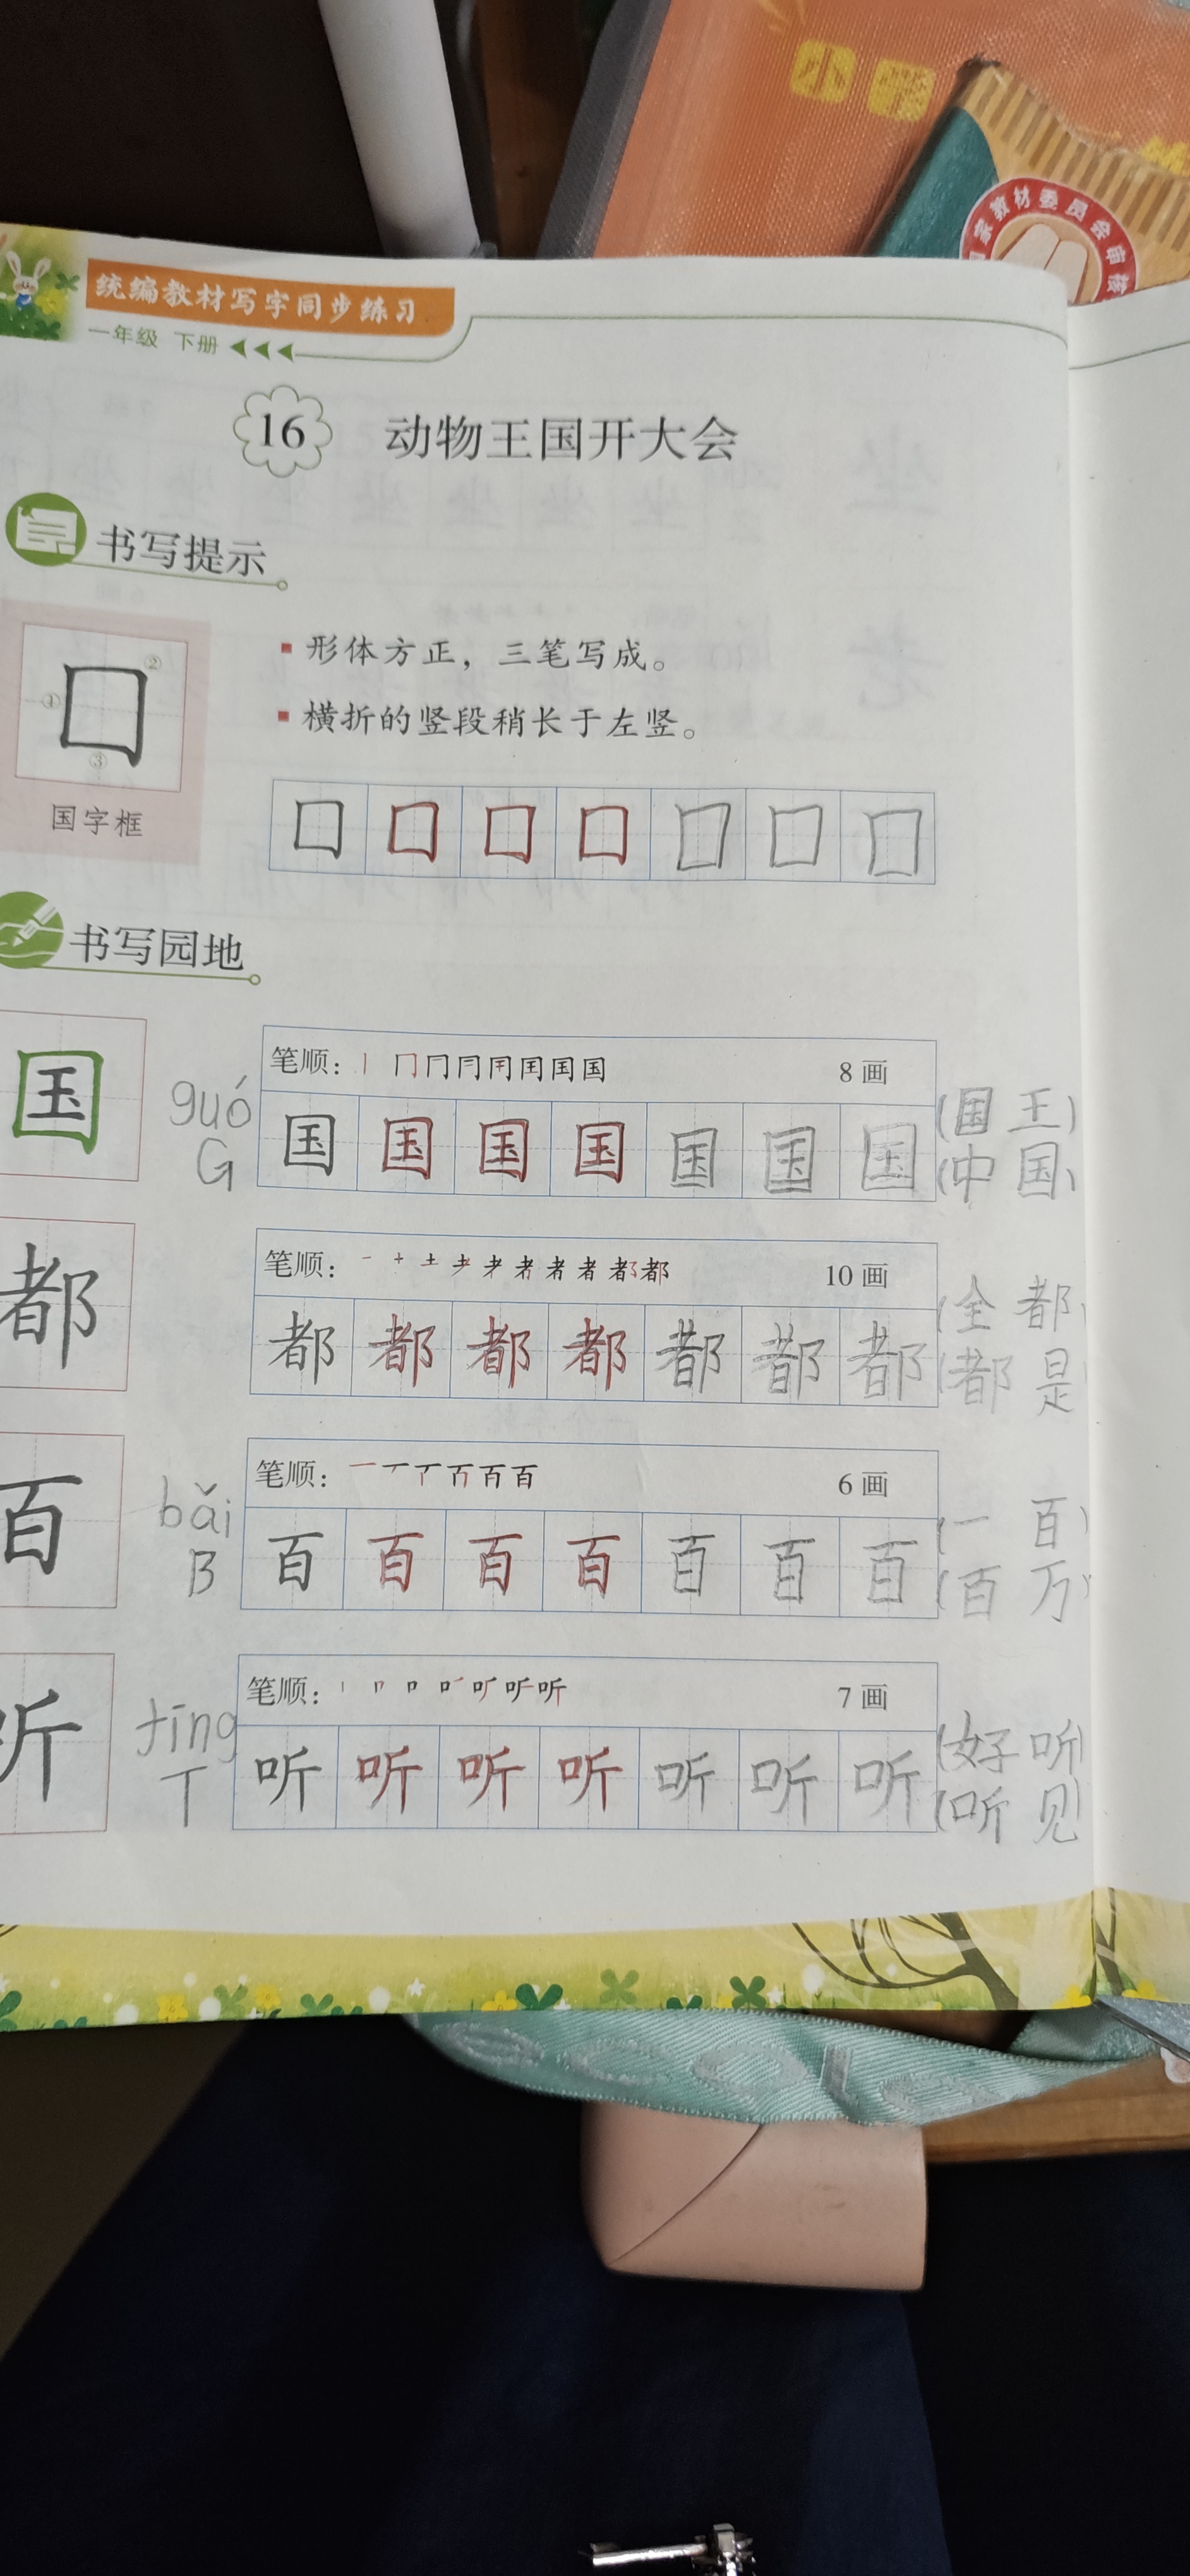 小学
家教材委员会审核
统编教材写字同步练习
一年级 下册
16 动物王国开大会
书写提示
① ② ③
国字框
形体方正，三笔写成。
横折的竖段稍长于左竖。
口 口 口 口 口 口 口
书写园地
国
guó
G
笔顺： 丨 冂 国 8画
国 国 国 国 国 国 国
(国 王)
(中 国)
都
笔顺： 一 十 土 耂 者 者 都 10画
都 都 都 都 都 都 都
(全 都)
(都 是)
百
bǎi
B
笔顺： 一 百 6画
百 百 百 百 百 百 百
(一 百)
(百 万)
听
tīng
T
笔顺： 丨 口 听 7画
听 听 听 听 听 听 听
(好 听)
(听 见)